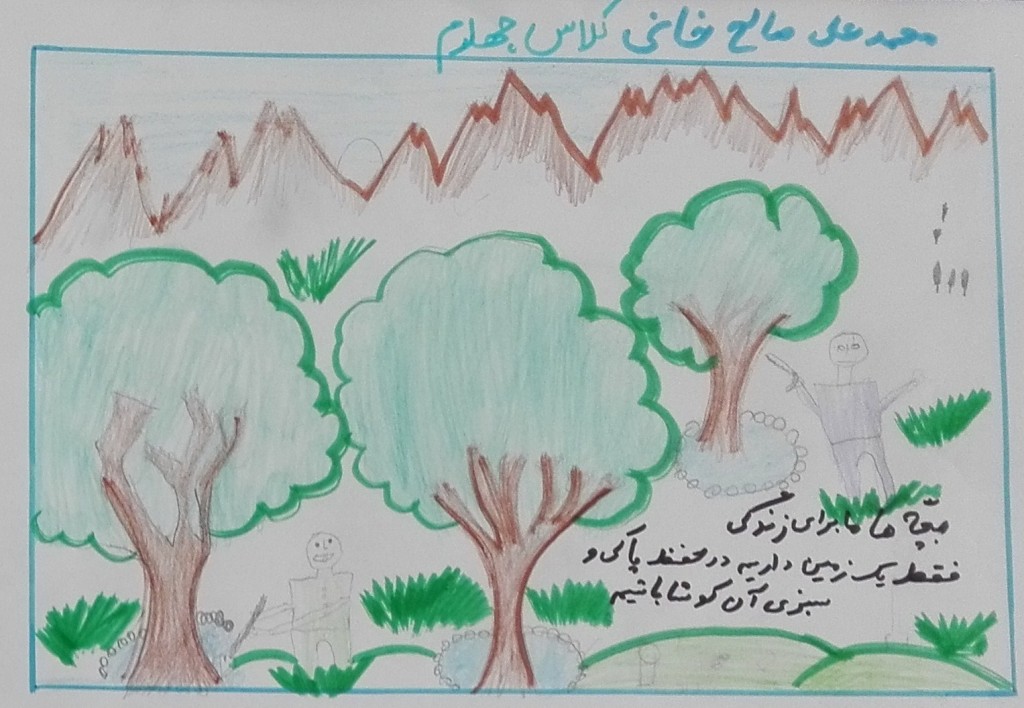 محمد علی صالح خانی کلاس چهارم
بچّه ها ما برای زندگی
فقط یک زمین داریم در حفظ پاکی و
سبزی آن کوشا باشیم